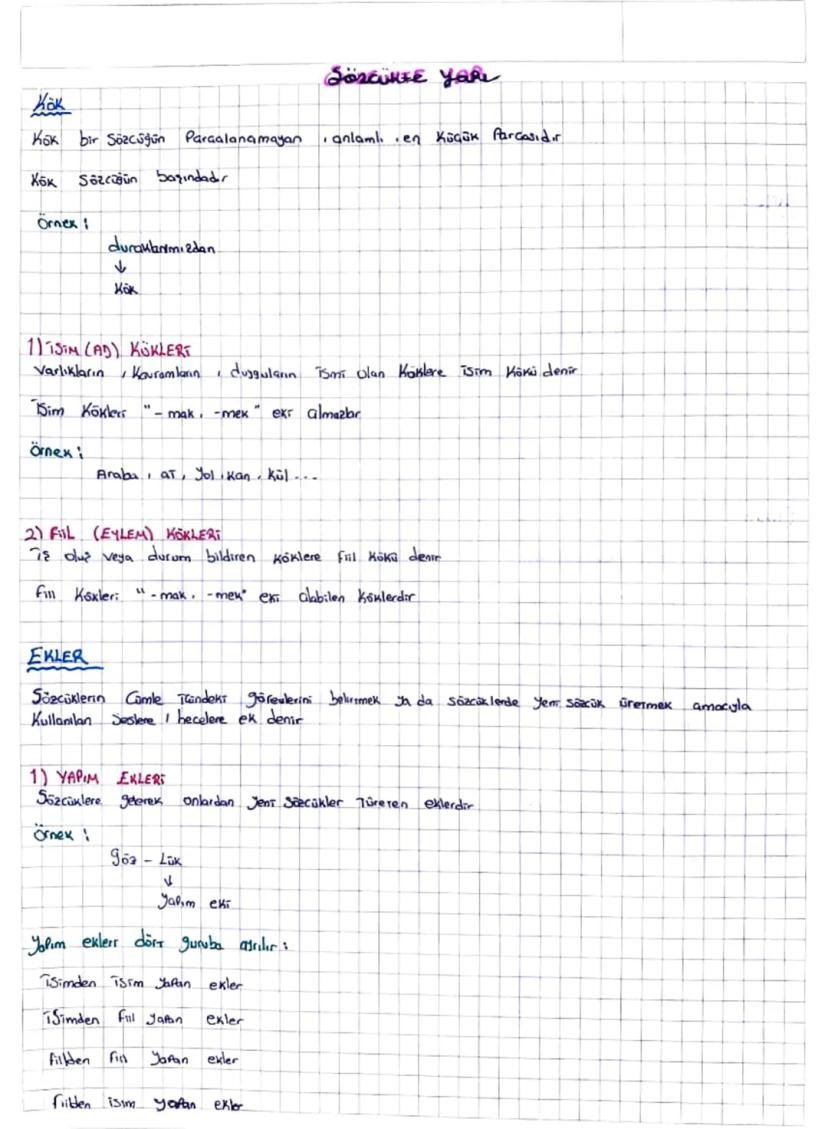 Sözcükte yapı
Kök
Kök bir sözcüğün parçalanamayan, anlamlı, en küçük parçasıdır
Kök sözcüğün başındadır
Örnek:
duraklarımızdan
↓
Kök
1) İSİM (AD) KÖKLERİ
Varlıkların, kavramların, duyguların ismi olan köklere isim kökü denir
İsim kökleri "-mak, -mek" eki almazlar
Örnek:
Araba, at, yol, kan, kül...
2) FİİL (EYLEM) KÖKLERİ
İş oluş veya durum bildiren köklere fiil kökü denir
Fiil kökleri "-mak, -mek" eki alabilen köklerdir
EKLER
Sözcüklerin cümle içindeki görevlerini belirtmek ya da sözcüklerde yeni sözcük üretmek amacıyla
kullanılan seslere / hecelere ek denir
1) YAPIM EKLERİ
Sözcüklere gelerek onlardan yeni sözcükler türeten eklerdir
Örnek:
göz - lük
↓
yapım eki
Yapım ekleri dört guruba ayrılır:
İsimden isim yapan ekler
İsimden fiil yapan ekler
Fiilden fiil yapan ekler
Fiilden isim yapan ekler